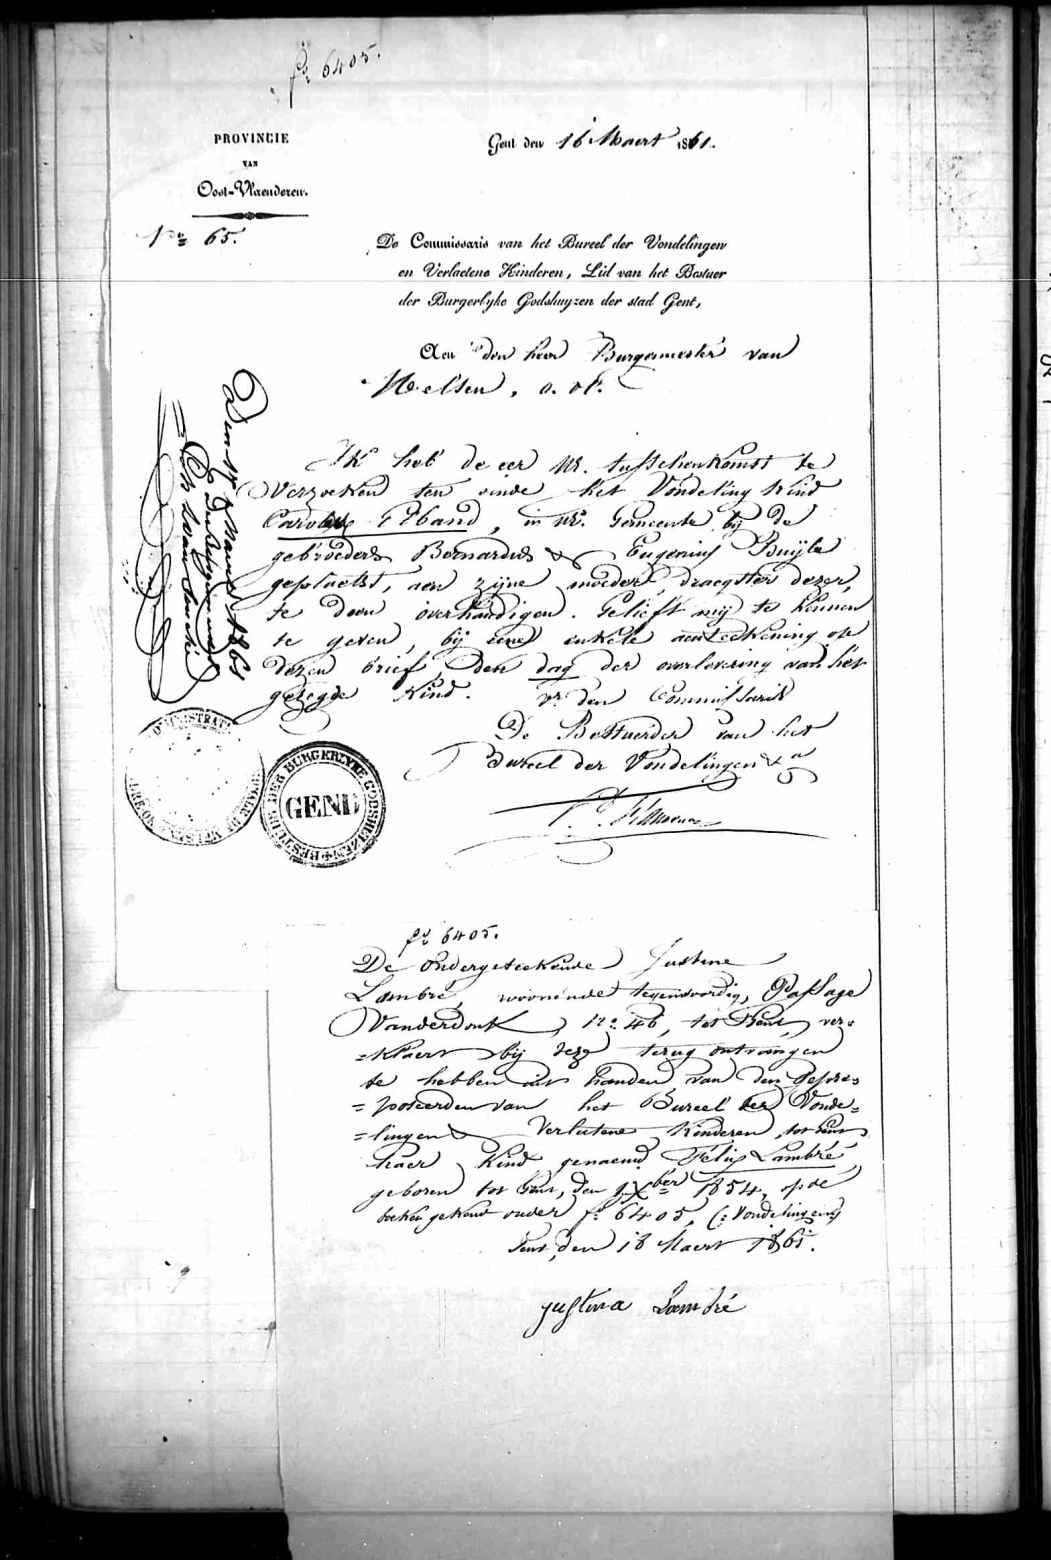 fº 6405.
PROVINCIE
VAN
Oost-Vlaenderen.
Nº 65.
Gent den 16 Maert 1861.
De Commissaris van het Bureel der Vondelingen
en Verlaetene Kinderen, Lid van het Bestuer
der Burgerlyke Godshuyzen der stad Gent,
Aen den heer Burgemeester van
Welsen, o. vl.
Ik heb de eer Ul. tusschenkomst te
verzoeken ten einde het Vondeling kind
Carolus, in Ul. Gemeente bij de
gebroeders Bernardus & Eugenius Buijle
geplaetst, aen zijne moeder, draegster dezer,
te doen overhandigen. Gelieft mij te kennen
te geven, bij eene enkele aenteekening op
dezen brief, den dag der overlevering van het
gezegde kind. Vr den Commissaris
De Bestuerder van het
Bureel der Vondelingen &a
Den 17 Maert 1861
De Burgemeester
BESTUUR DER BURGERLYKE GODSHUIZEN
GEND
fº 6405.
De ondergeteekende Justine
Lambré, woonende tegenwoordig, Passage
Vanderdonk, nº 46, tot Gent, ver=
=klaert bij deze terug ontvangen
te hebben uit handen van den Gepre=
=poseerden van het Bureel der Vonde=
=lingen & Verlatene Kinderen, tot Gent
haer Kind genaemd Félix Lambré
geboren tot Gent, den 9 Xber 1854, op de
boeken gekend onder fº 6405, (: Vondelingen :)
Gent, den 18 Maert 1861.
Justina Lambré